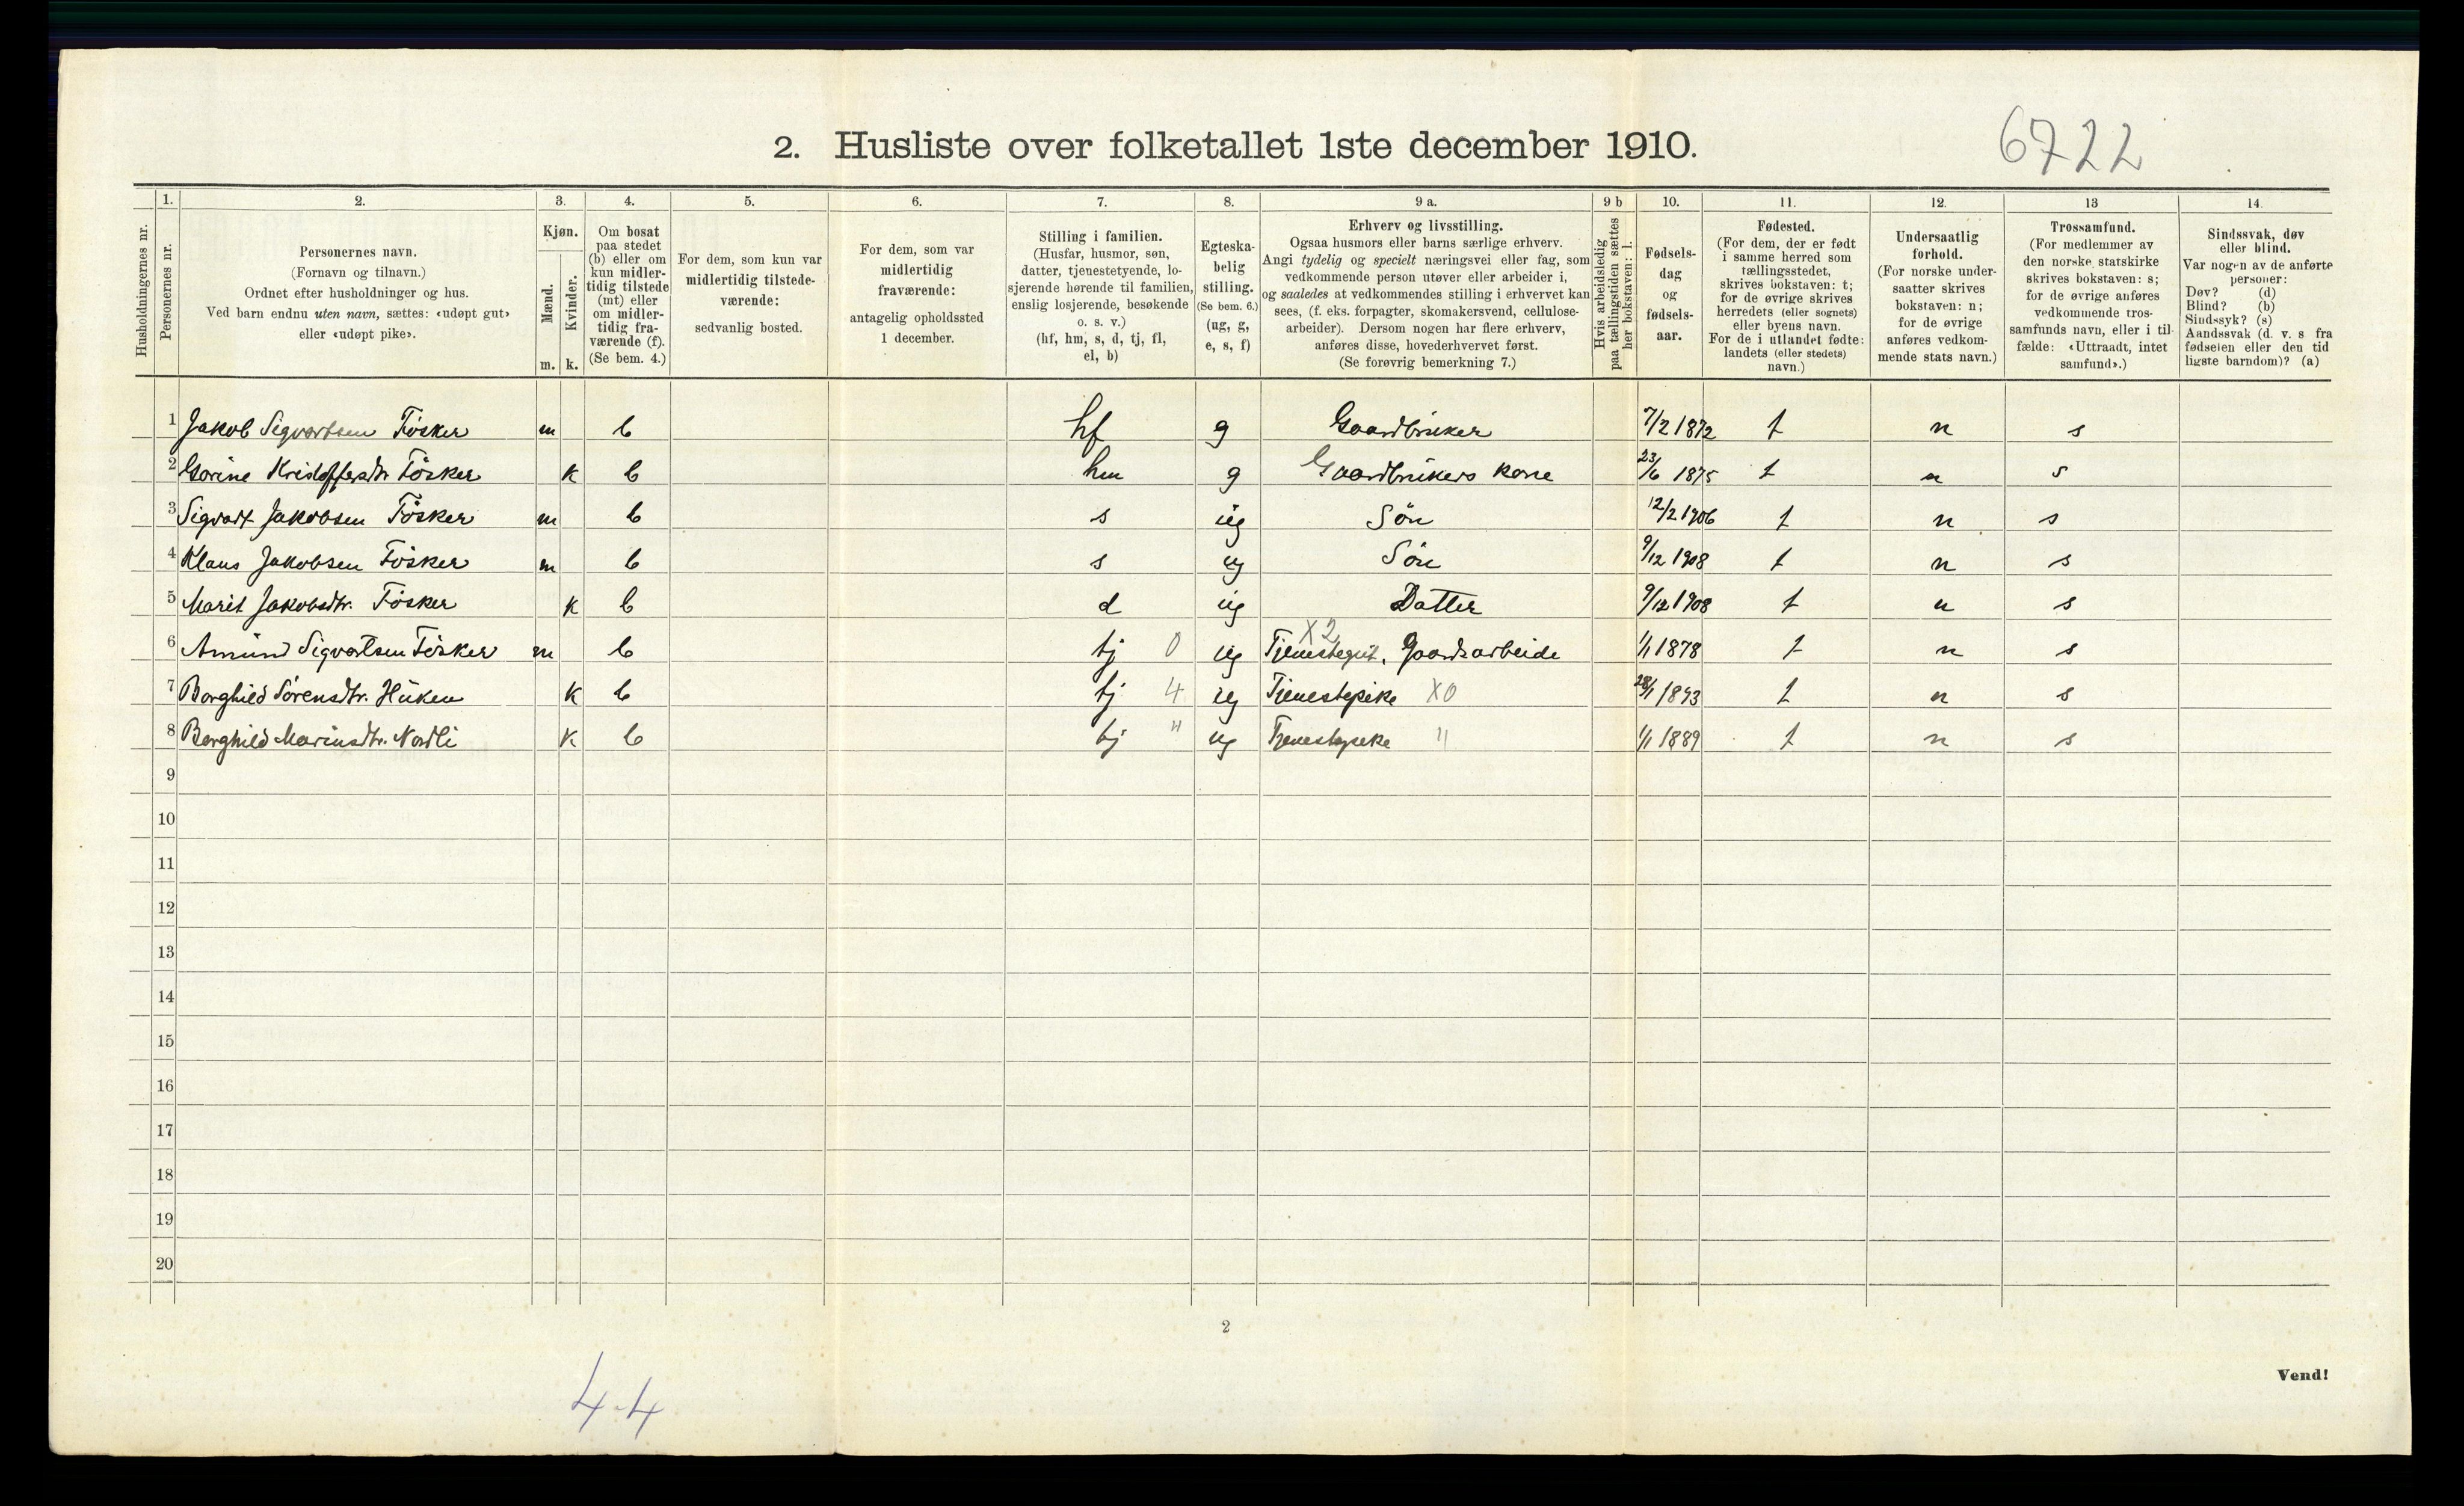 2. Husliste over folketallet 1ste december 1910.
6722
Husholdningernes nr.
1. Personernes nr.
2. Personernes navn. (Fornavn og tilnavn.) Ordnet efter husholdninger og hus. Ved barn endnu uten navn, sættes: «udøpt gut» eller «udøpt pike».
3. Kjøn. Mænd. m. Kvinder. k.
4. Om bosat paa stedet (b) eller om kun midlertidig tilstede (mt) eller om midlertidig fraværende (f). (Se bem. 4.)
5. For dem, som kun var midlertidig tilstedeværende: sedvanlig bosted.
6. For dem, som var midlertidig fraværende: antagelig opholdssted 1 december.
7. Stilling i familien. (Husfar, husmor, søn, datter, tjenestetyende, losjerende hørende til familien, enslig losjerende, besøkende o. s. v.) (hf, hm, s, d, tj, fl, el, b)
8. Egteskabelig stilling. (Se bem. 6.) (ug, g, e, s, f)
9 a. Erhverv og livsstilling. Ogsaa husmors eller barns særlige erhverv. Angi tydelig og specielt næringsvei eller fag, som vedkommende person utøver eller arbeider i, og saaledes at vedkommendes stilling i erhvervet kan sees, (f. eks. forpagter, skomakersvend, cellulosearbeider). Dersom nogen har flere erhverv, anføres disse, hovederhvervet først. (Se forøvrig bemerkning 7.)
9 b Hvis arbeidsledig paa tællingstiden sættes her bokstaven: l.
10. Fødselsdag og fødselsaar.
11. Fødested. (For dem, der er født i samme herred som tællingsstedet, skrives bokstaven: t; for de øvrige skrives herredets (eller sognets) eller byens navn. For de i utlandet fødte: landets (eller stedets) navn.)
12. Undersaatlig forhold. (For norske undersaatter skrives bokstaven: n; for de øvrige anføres vedkommende stats navn.)
13 Trossamfund. (For medlemmer av den norske statskirke skrives bokstaven: s; for de øvrige anføres vedkommende trossamfunds navn, eller i tilfælde: «Uttraadt, intet samfund».)
14. Sindssvak, døv eller blind. Var nogen av de anførte personer: Døv? (d) Blind? (b) Sindssyk? (s) Aandssvak (d. v. s fra fødselen eller den tidligste barndom)? (a)
1 Jakob Sigvartsen Tösker m b hf g Gaardbruker 7/2 1872 t n s
2 Gorine Kristoffersdtr. Tösker k b hm g Gaardbrukers kone 23/6 1875 t n s
3 Sigvart Jakobsen Tösker m b s ug Sön 12/2 1906 t n s
4 Klaus Jakobsen Tösker m b s ug Sön 9/12 1908 t n s
5 Marit Jakobsdtr. Tösker k b d ug Datter 9/12 1908 t n s
6 Amund Sigvartsen Tösker m b tj 0 ug Tjenestegut, Gaardsarbeide X2 1/1 1878 t n s
7 Borghild Sörensdtr. Huken k b tj 4 ug Tjenestepike X0 28/1 1893 t n s
8 Borghild Mariusdtr. Nordli k b tj " ug Tjenestepike " 1/1 1889 t n s
9
10
11
12
13
14
15
16
17
18
19
20
2
Vend!
4-4